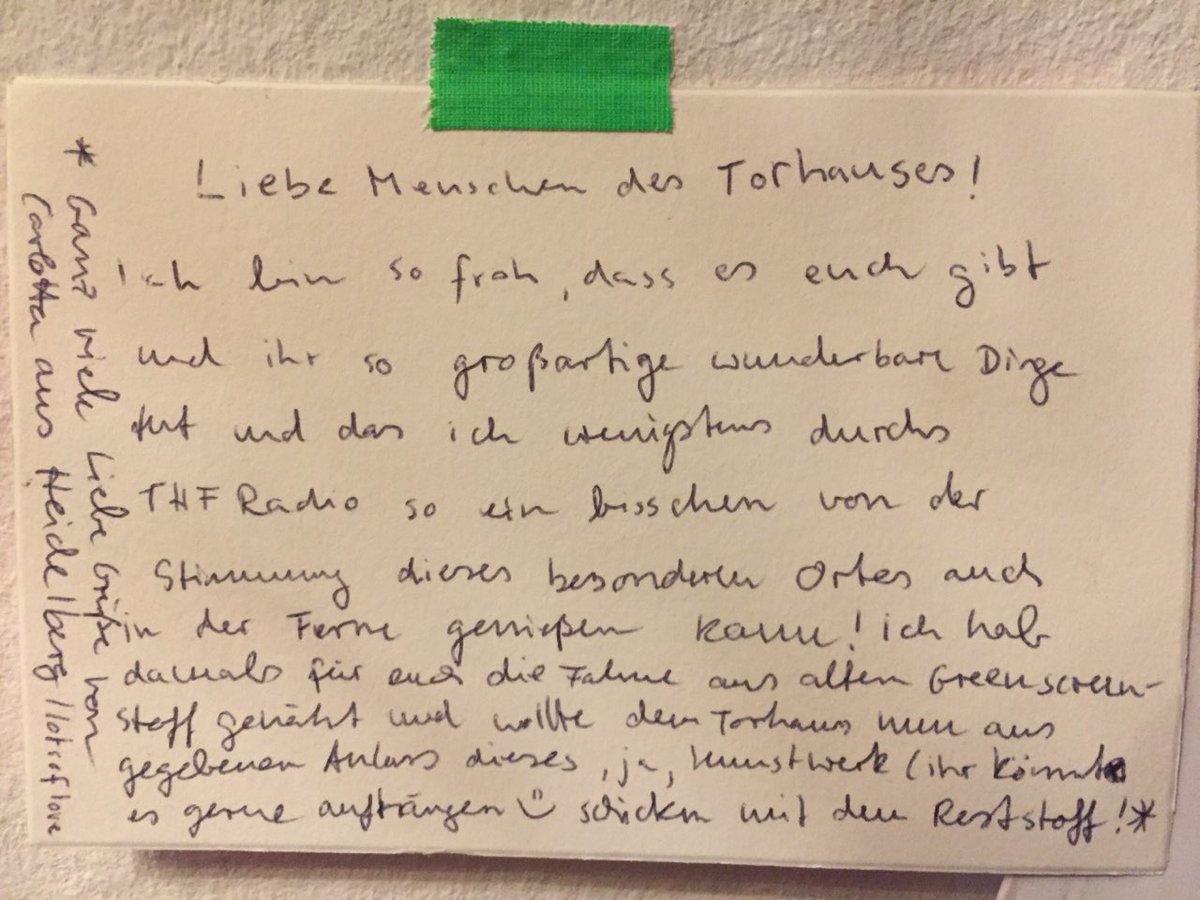 Liebe Menschen des Torhauses!
ich bin so froh, dass es euch gibt
und ihr so großartige wunderbare Dinge
tut und das ich wenigstens durchs
THF Radio so ein bisschen von der
Stimmung dieses besonderen Ortes auch
in der Ferne genießen kann! ich hab
damals für euch die Fahne aus altem Greenscreen-
stoff genäht und wollte dem Torhaus nun aus
gegebenen Anlass dieses, ja, kunstwerk (ihr könnt
es gerne aufhängen ☺ schicken mit dem Reststoff!*
* Ganz viele Liebe Grüße von
Carlotta aus Heidelberg / lotsoflove